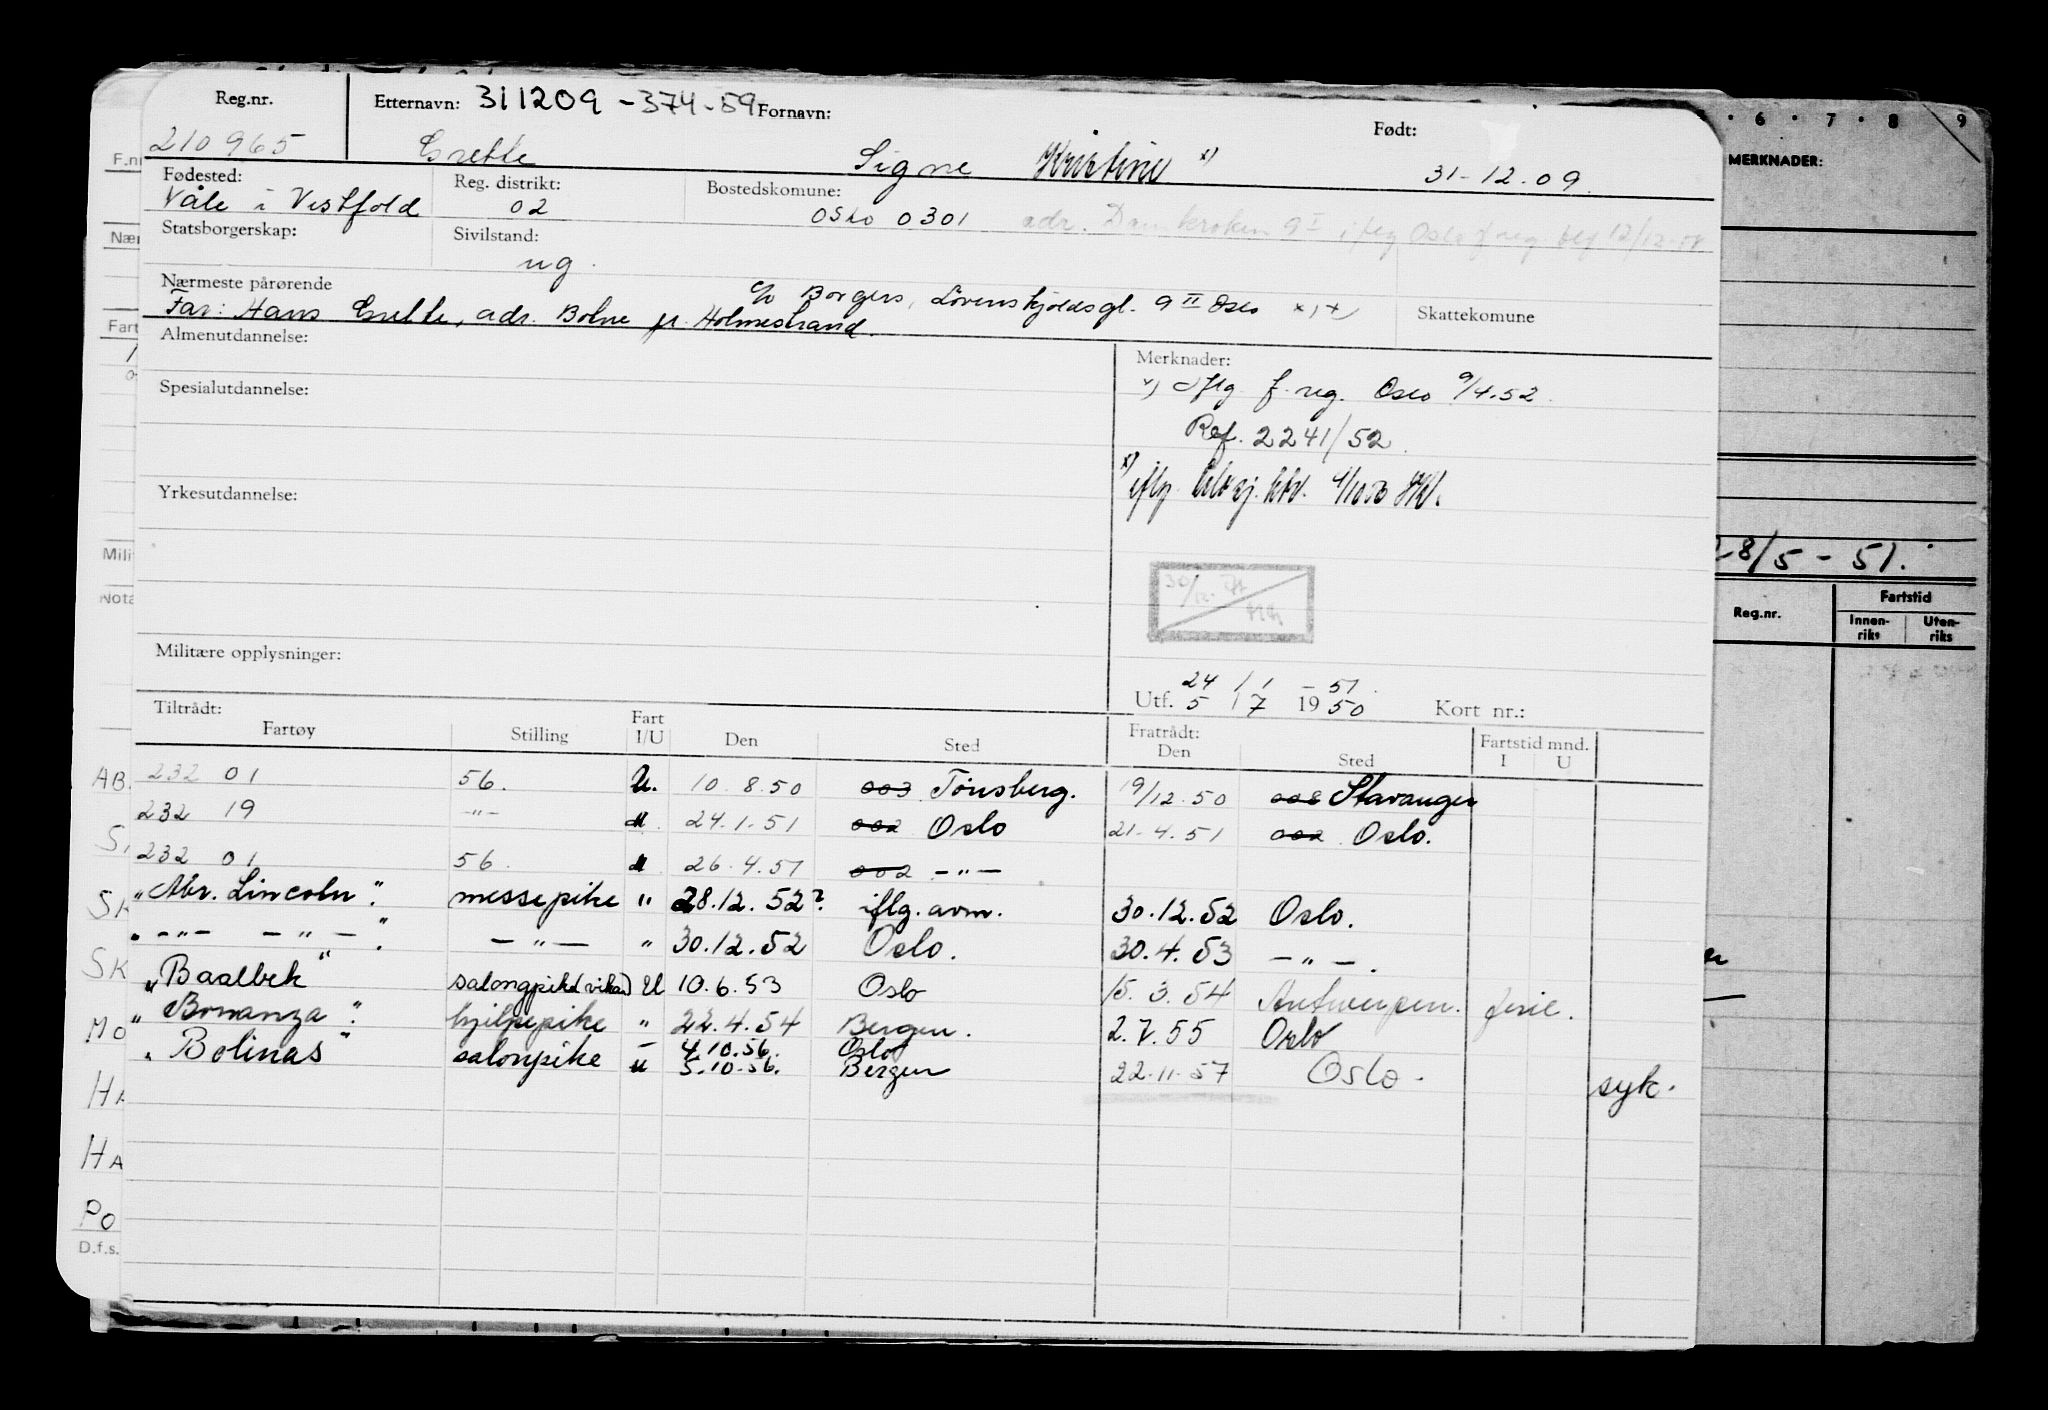 Reg.nr. Etternavn: 311209 - 374-59 Fornavn: Født:
210965 Grette Signe Kristine x) 31-12.09.
Fødested: Reg. distrikt: Bostedskomune:
Våle i Vestfold 02 Oslo 0301 adr. Damkroken 9 I
Statsborgerskap: Sivilstand:
ug.
Nærmeste pårørende c/o Borgers, Løvenskjoldsgt. 9 II Oslo x) x)
Far: Hans Grette, adr. Bolne pr. Holmestrand. Skattekomune
Almenutdannelse: Merknader:
x) iflg f.reg. Oslo 9/4.52.
Spesialutdannelse: Ref. 2241/52.
x) iflg.
Yrkesutdannelse:
Militære opplysninger:
24 / 1 - 51.
Utf. 5 / 7 1950 Kort nr.:
Tiltrådt: Fratrådt:
Fartøy Stilling Fart I/U Den Sted Den Sted Fartstid mnd. I U
232 01 56. U. 10.8.50 003 Tønsberg. 19/12.50 008 Stavanger
232 19 -"- " 24.1.51 002 Oslo 21-4.51 002 Oslo.
232 01 56. " 26.4.51 002 -"-
"Abr. Lincoln". messepike " 28.12.52? iflg. avm. 30.12.52 Oslo.
"-"- -"-". -"- " 30.12.52 Oslo. 30.4.53 -"-.
"Baalbek" salongpike (vikar) U 10.6.53 Oslo 15.3.54 Antwerpen. ferie.
"Bonanza". hjelpepike " 22.4.54 Bergen. 2.7.55 Oslo
"Bolinas" salonpike - 4.10.56. Oslo
u 5.10.56. Bergen 22.11.57 Oslo. syk.
F.nr
Nær
Fart
Mili
Nota
AB.
S.
SK
SK
MO
HA
HA
PO
D.f.s.
6 • 7 • 8 9
MERKNADER:
28/5 - 51.
Reg.nr. Fartstid
Innen-riks Uten-riks